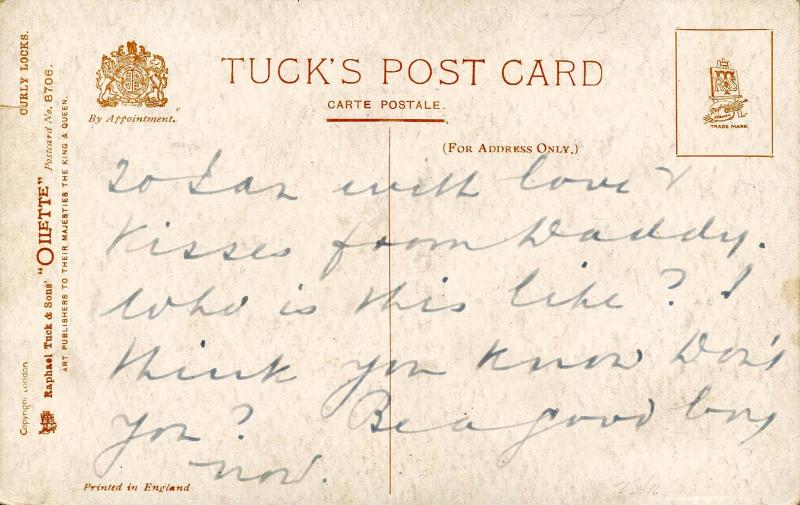 TUCK'S POST CARD
CARTE POSTALE.
By Appointment.
(FOR ADDRESS ONLY.)
TRADE MARK
CURLY LOCKS.
Raphael Tuck & Sons' "OILETTE" Postcard No. 8706.
ART PUBLISHERS TO THEIR MAJESTIES THE KING & QUEEN.
Copyright London
To Ian with love &
Kisses from Daddy.
Who is this like? I
think you know Don't
you? Be a good boy
now.
Printed in England